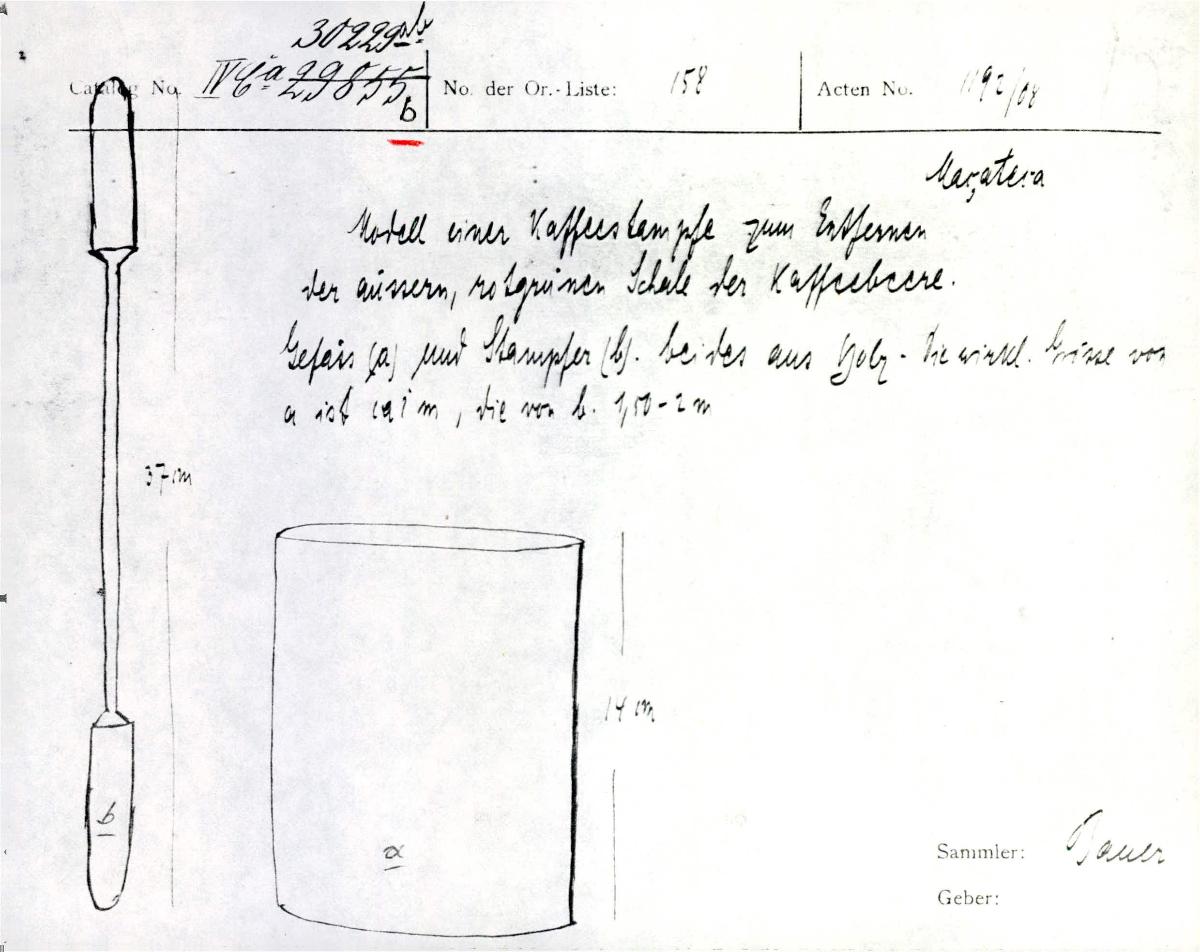 30229 a b
Catalog No. IV Ca 29855 b No. der Or.-Liste: 158 Acten No. 1192/08
Mazateca
Modell einer Kaffeestampfe zum Entfernen
der äussern, rotgrünen Schale der Kaffeebeere.
Gefäss (a) und Stampfer (b). beides aus Holz - Die wirkl. Grösse von
a ist ca 1 m, die von b. 1,50-2 m
37 cm
14 cm
b
a
Sammler: Bauer
Geber: